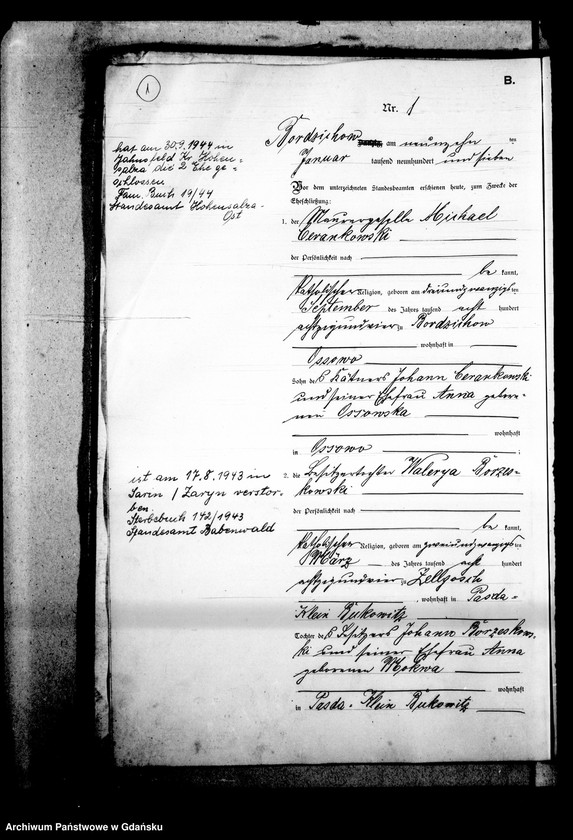 1
B.
Nr. 1
hat am 30.9.1944 in
Jahnsfeld Kr. Hohen=
salza die 2. Ehe ge=
schlossen
Fam. Buch 19/44
Standesamt Hohensalza-
Ost
Bordzichow am neunzehn ten
Januar tausend neunhundert und sieben
Vor dem unterzeichneten Standesbeamten erschienen heute, zum Zwecke der
Eheschließung:
1. der Maurergeselle Michael
Cerankowski
der Persönlichkeit nach
be kannt,
katholischer Religion, geboren am dreiundzwanzigsten
September des Jahres tausend acht hundert
achtzigundvier zu Bordzichow
, wohnhaft in
Ossowo
Sohn des Kätners Johann Cerankowski
und seiner Ehefrau Anna gebore-
nen Ossowska
wohnhaft
in Ossowo ;
ist am 17.8.1943 in
Saren / Zaryn verstor-
ben.
Sterbebuch 142/1943
Standesamt Babenwald
2. die Besitzertochter Walerya Borzes-
kowski
der Persönlichkeit nach
be kannt,
katholischer Religion, geboren am zweiundzwanzigsten
März des Jahres tausend acht hundert
achtzigundvier zu Zellgosch
, wohnhaft in Pasda-
Klein Bukowitz
Tochter des Besitzers Johann Borzeskow-
ski und seiner Ehefrau Anna
geborenen Mokwa
wohnhaft
in Pasda-Klein Bukowitz
Archiwum Państwowe w Gdańsku